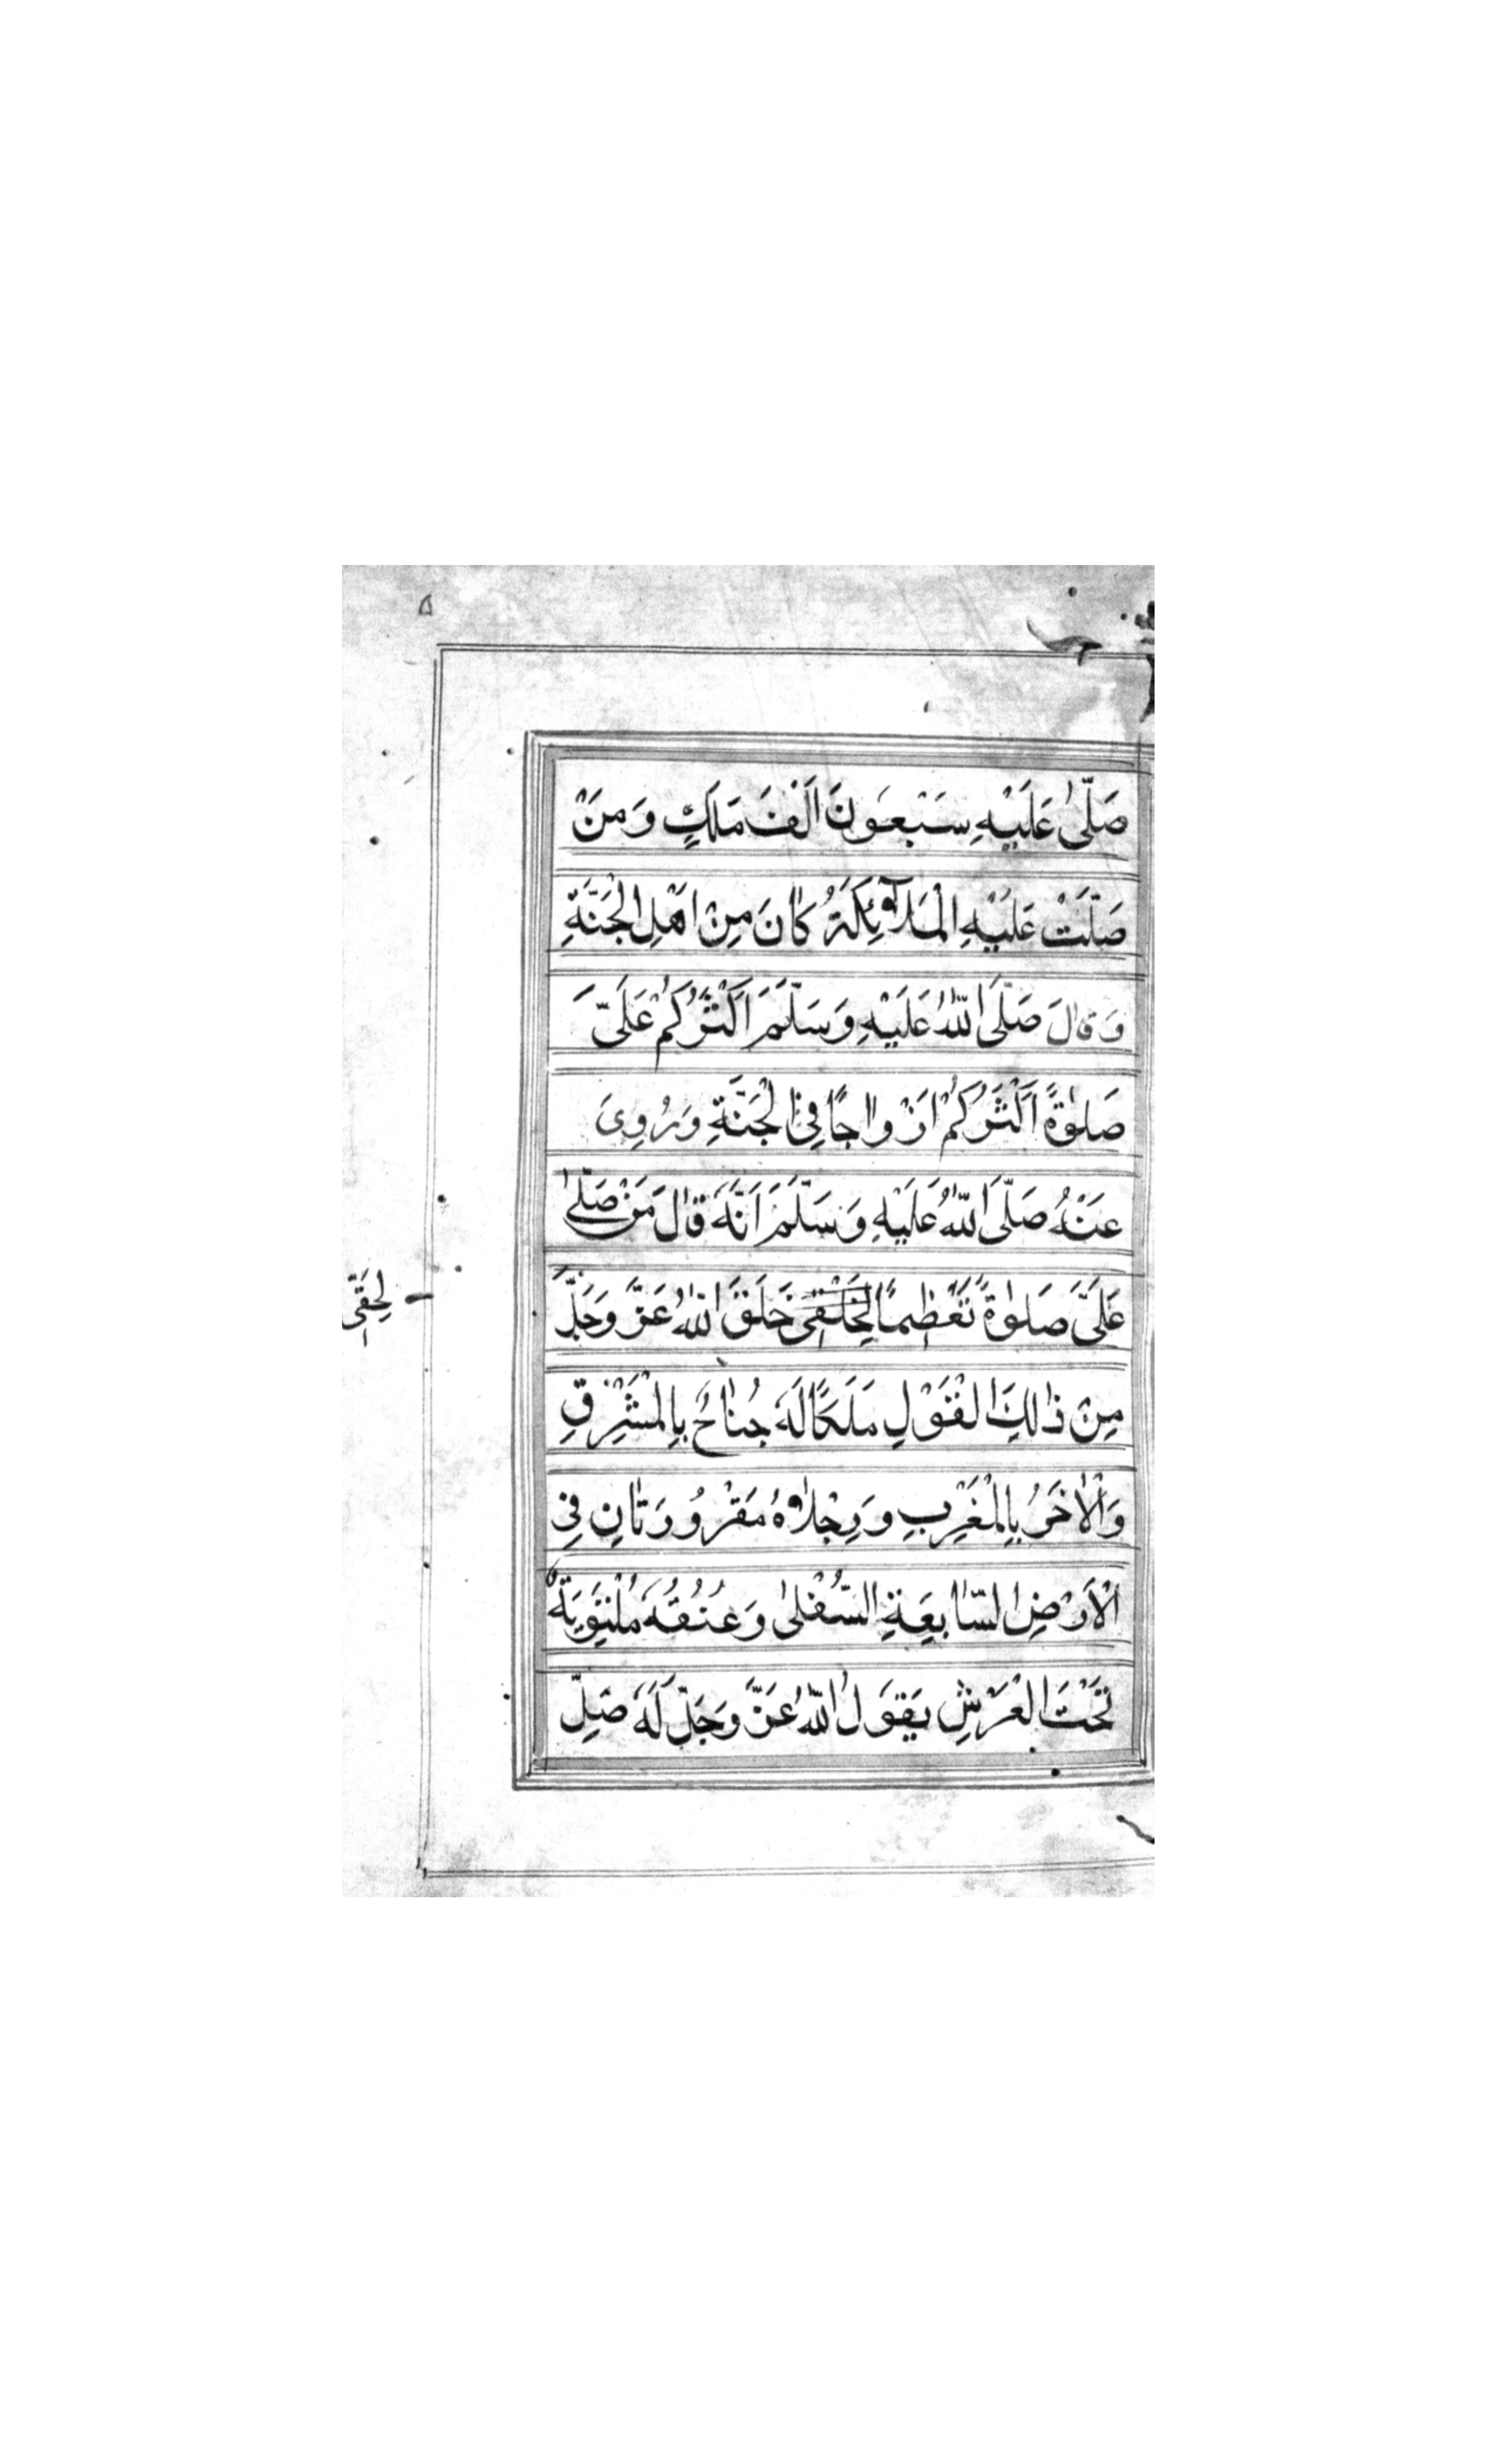 ۵
صَلّىٰ عَلَيْهِ سَبْعُونَ اَلْفَ مَلَكٍ وَمَنْ
صَلَّتْ عَلَيْهِ الْمَلآئِكَةُ كَانَ مِنْ اَهْلِ الْجَنَّةِ
وَقَالَ صَلَّى اللّٰهُ عَلَيْهِ وَسَلَّمَ اَكْثَرُكُمْ عَلَىَّ
صَلوٰةً اَكْثَرُكُمْ اَزْوَاجًا فِى الْجَنَّةِ وَرُوِىَ
عَنْهُ صَلَّى اللّٰهُ عَلَيْهِ وَسَلَّمَ اَنَّهُ قَالَ مَنْ صَلّىٰ
عَلَىَّ صَلوٰةً تَعْظِيمًا لِخَلْقِى خَلَقَ اللّٰهُ عَزَّ وَجَلَّ
لِحَقِّى
مِنْ ذَالِكَ الْقَوْلِ مَلَكًا لَهُ جُنَاحٌ بِالْمَشْرِقِ
وَالْاٰخَرُ بِالْمَغْرِبِ وَرِجْلَاهُ مَقْرُورَتَانِ فِى
الْاَرْضِ السَّابِعَةِ السُّفْلىٰ وَعُنُقُهُ مُلْتَوِيَةٌ
تَحْتَ الْعَرْشِ يَقُولُ اللّٰهُ عَزَّ وَجَلَّ لَهُ صَلِّ